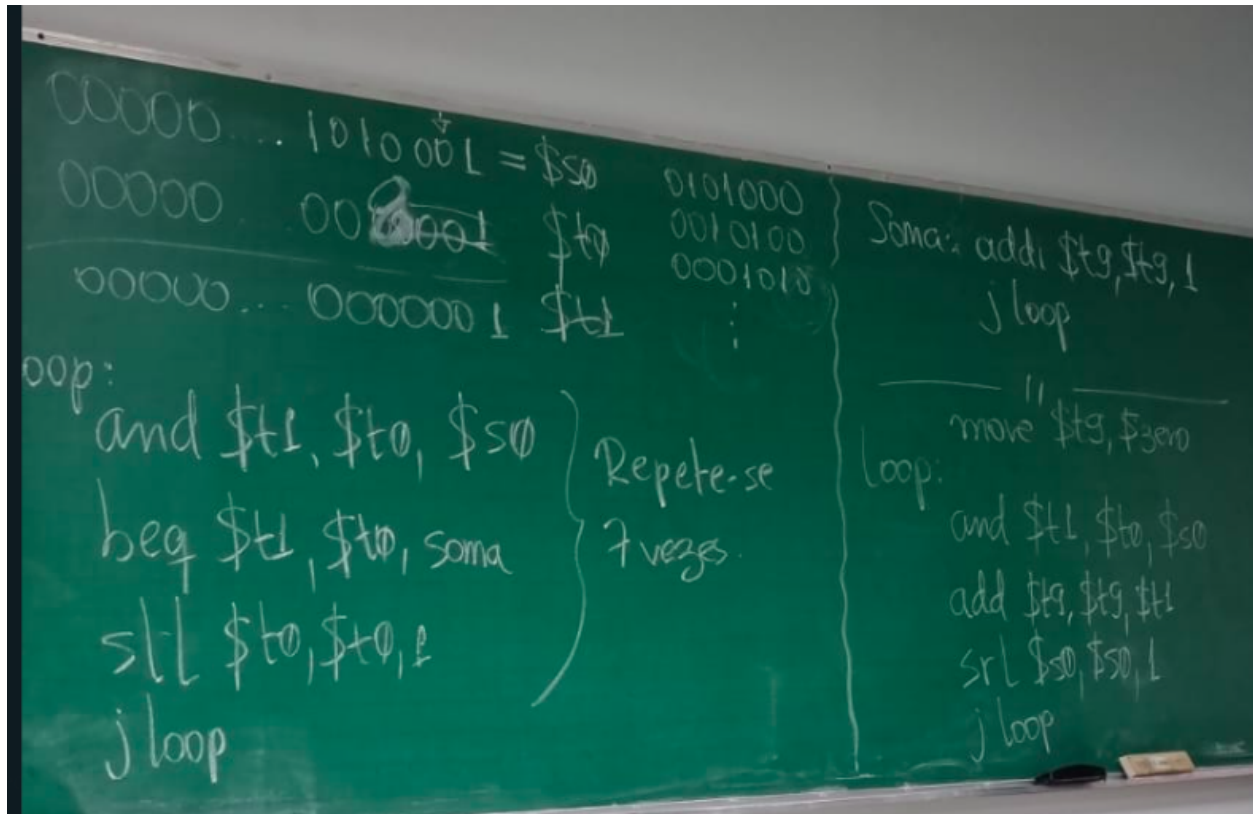 00000.... 1010001 = $s0
00000 ... 001 $t0
00000... 0000001 $t1
0101000
0010100
0001010
⋮
oop:
and $t1, $t0, $s0
beq $t1, $t0, soma
sll $t0, $t0, 1
j loop
Repete-se
7 vezes.
Soma: addi $t9, $t9, 1
j loop
move $t9, $zero
loop:
and $t1, $t0, $s0
add $t9, $t9, $t1
srl $s0, $s0, 1
j loop